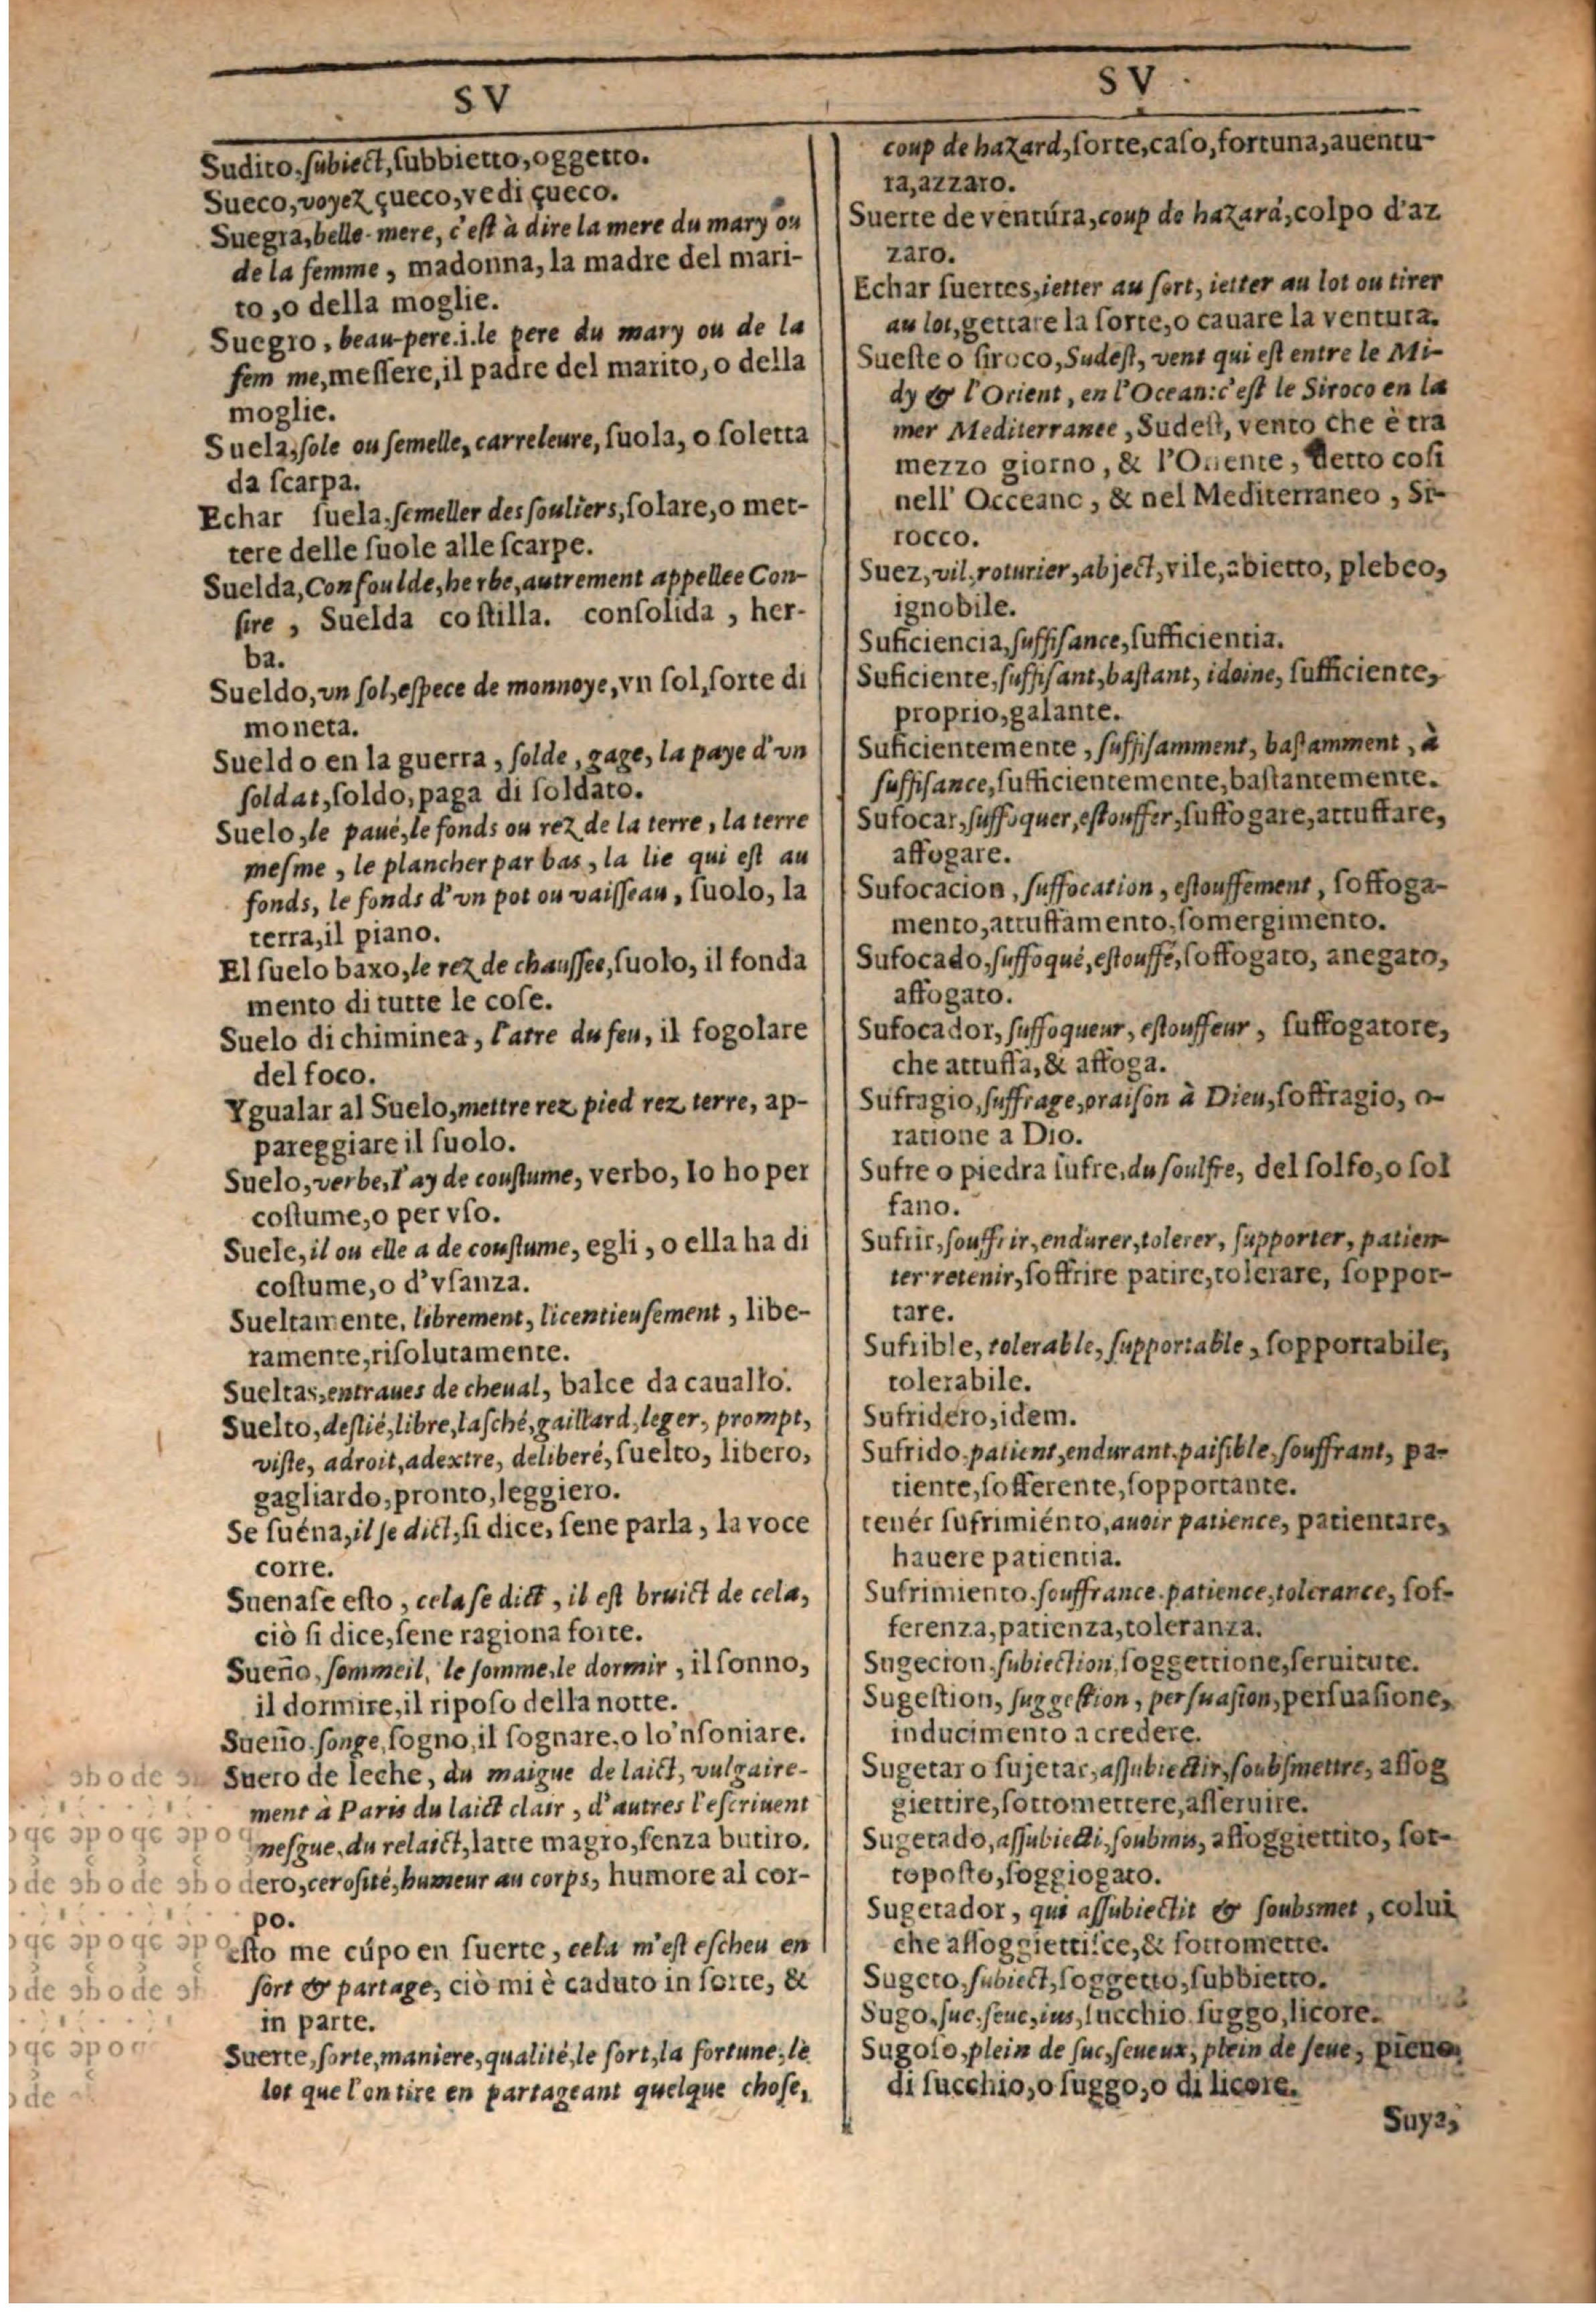 SV
Sudito, ſubiect, ſubbietto, oggetto.
Sueco, voyez çueco, vedi çueco.
Suegra, belle-mere, c'eſt à dire la mere du mary ou
de la femme, madonna, la madre del mari-
to, o della moglie.
Suegro, beau-pere.i.le pere du mary ou de la
fem me, meſſere, il padre del marito, o della
moglie.
Suela, ſole ou ſemelle, carreleure, ſuola, o ſoletta
da ſcarpa.
Echar ſuela, ſemeller des ſouliers, ſolare, o met-
tere delle ſuole alle ſcarpe.
Suelda, Conſoulde, herbe, autrement appellee Con-
ſire, Suelda coſtilla. conſolida, her-
ba.
Sueldo, vn ſol, eſpece de monnoye, vn ſol, ſorte di
moneta.
Sueldo en la guerra, ſolde, gage, la paye d'vn
ſoldat, ſoldo, paga di ſoldato.
Suelo, le paué, le fonds ou rez de la terre, la terre
meſme, le plancher par bas, la lie qui eſt au
fonds, le fonds d'vn pot ou vaiſſeau, ſuolo, la
terra, il piano.
El ſuelo baxo, le rez de chauſſee, ſuolo, il fonda
mento di tutte le coſe.
Suelo di chiminea, l'atre du feu, il fogolare
del foco.
Ygualar al Suelo, mettre rez pied rez terre, ap-
pareggiare il ſuolo.
Suelo, verbe, I'ay de couſtume, verbo, Io ho per
coſtume, o per vſo.
Suele, il ou elle a de couſtume, egli, o ella ha di
coſtume, o d'vſanza.
Sueltamente, librement, licentieuſement, libe-
ramente, riſolutamente.
Sueltas, entraues de cheual, balce da cauallo.
Suelto, deſlié, libre, laſché, gaillard, leger, prompt,
viſte, adroit, adextre, deliberé, ſuelto, libero,
gagliardo, pronto, leggiero.
Se ſuéna, il ſe dict, ſi dice, ſene parla, la voce
corre.
Suenaſe eſto, cela ſe dict, il eſt bruict de cela,
ciò ſi dice, ſene ragiona forte.
Sueño, ſommeil, le ſomme, le dormir, il ſonno,
il dormire, il ripoſo della notte.
Sueño, ſonge, ſogno, il ſognare, o lo'nſoniare.
Suero de leche, du maigue de laict, vulgaire-
ment à Paris du laict clair, d'autres l'eſcriuent
meſgue, du relaict, latte magro, ſenza butiro.
dero, ceroſité, humeur au corps, humore al cor-
po.
eſto me cúpo en ſuerte, cela m'eſt eſcheu en
ſort & partage, ciò mi è caduto in ſorte, &
in parte.
Suerte, ſorte, maniere, qualité, le ſort, la fortune, le
lot que l'on tire en partageant quelque choſe,
SV
coup de hazard, ſorte, caſo, fortuna, auentu-
ra, azzaro.
Suerte de ventúra, coup de hazard, colpo d'az
zaro.
Echar ſuertes, ietter au ſort, ietter au lot ou tirer
au lot, gettare la ſorte, o cauare la ventura.
Sueſte o ſiroco, Sudeſt, vent qui eſt entre le Mi-
dy & l'Orient, en l'Ocean: c'eſt le Siroco en la
mer Mediterranee, Sudeſt, vento che è tra
mezzo giorno, & l'Oriente, detto coſi
nell' Occeano, & nel Mediterraneo, Si-
rocco.
Suez, vil, roturier, abject, vile, abietto, plebeo,
ignobile.
Suficiencia, ſuffiſance, ſufficientia.
Suficiente, ſuffiſant, baſtant, idoine, ſufficiente,
proprio, galante.
Suficientemente, ſuffiſamment, baſtamment, à
ſuffiſance, ſufficientemente, baſtantemente.
Sufocar, ſuffoquer, eſtouffer, ſuffogare, attuffare,
affogare.
Sufocacion, ſuffocation, eſtouffement, ſoffoga-
mento, attuffamento, ſomergimento.
Sufocado, ſuffoqué, eſtouffé, ſoffogato, anegato,
affogato.
Sufocador, ſuffoqueur, eſtouffeur, ſuffogatore,
che attuffa, & affoga.
Sufragio, ſuffrage, oraiſon à Dieu, ſoffragio, o-
ratione a Dio.
Sufre o piedra ſufre, du ſoulfre, del ſolfo, o ſol
fano.
Sufrir, ſouffrir, endurer, tolerer, ſupporter, patien-
ter retenir, ſoffrire patire, tolerare, ſoppor-
tare.
Sufrible, tolerable, ſupportable, ſopportabile,
tolerabile.
Sufridero, idem.
Sufrido, patient, endurant, paiſible, ſouffrant, pa-
tiente, ſofferente, ſopportante.
tenér ſufrimiénto, auoir patience, patientare,
hauere patientia.
Sufrimiento, ſouffrance, patience, tolerance, ſof-
ferenza, patienza, toleranza.
Sugecion, ſubiection, ſoggettione, ſeruitute.
Sugeſtion, ſuggeſtion, perſuaſion, perſuaſione,
inducimento a credere.
Sugetar o ſujetar, aſſubiectir, ſoubſmettre, aſſog
giettire, ſottomettere, aſſeruire.
Sugetado, aſſubiecti, ſoubmis, aſſoggiettito, ſot-
topoſto, ſoggiogato.
Sugetador, qui aſſubiectit & ſoubsmet, colui
che aſſoggiettiſce, & ſottomette.
Sugeto, ſubiect, ſoggetto, ſubbietto.
Sugo, ſuc, ſeue, ius, ſucchio, ſuggo, licore.
Sugoſo, plein de ſuc, ſeueux, plein de ſeue, pieno
di ſucchio, o ſuggo, o di licore.
Suya,